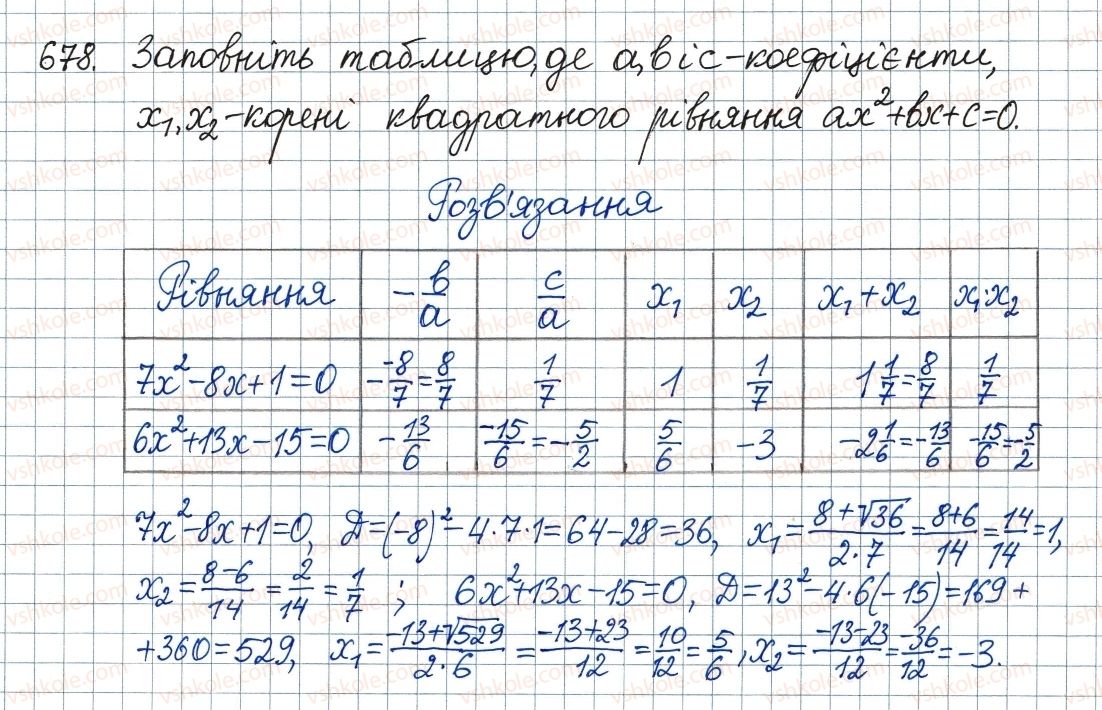 678. Заповніть таблицю, де а, в і с - коефіцієнти,
x₁, x₂ - корені квадратного рівняння ax²+вx+c=0.
Розв'язання
Рівняння | -в/а | с/а | x₁ | x₂ | x₁+x₂ | x₁·x₂
7x²-8x+1=0 | - -8/7 = 8/7 | 1/7 | 1 | 1/7 | 1 1/7 = 8/7 | 1/7
6x²+13x-15=0 | -13/6 | -15/6 = -5/2 | 5/6 | -3 | -2 1/6 = -13/6 | -15/6 = -5/2
7x²-8x+1=0, Д=(-8)²-4·7·1=64-28=36, x₁=(8+√36)/(2·7)=(8+6)/14=14/14=1,
x₂=(8-6)/14=2/14=1/7; 6x²+13x-15=0, Д=13²-4·6(-15)=169+
+360=529, x₁=(-13+√529)/(2·6)=(-13+23)/12=10/12=5/6, x₂=(-13-23)/12=-36/12=-3.
vshkole.com